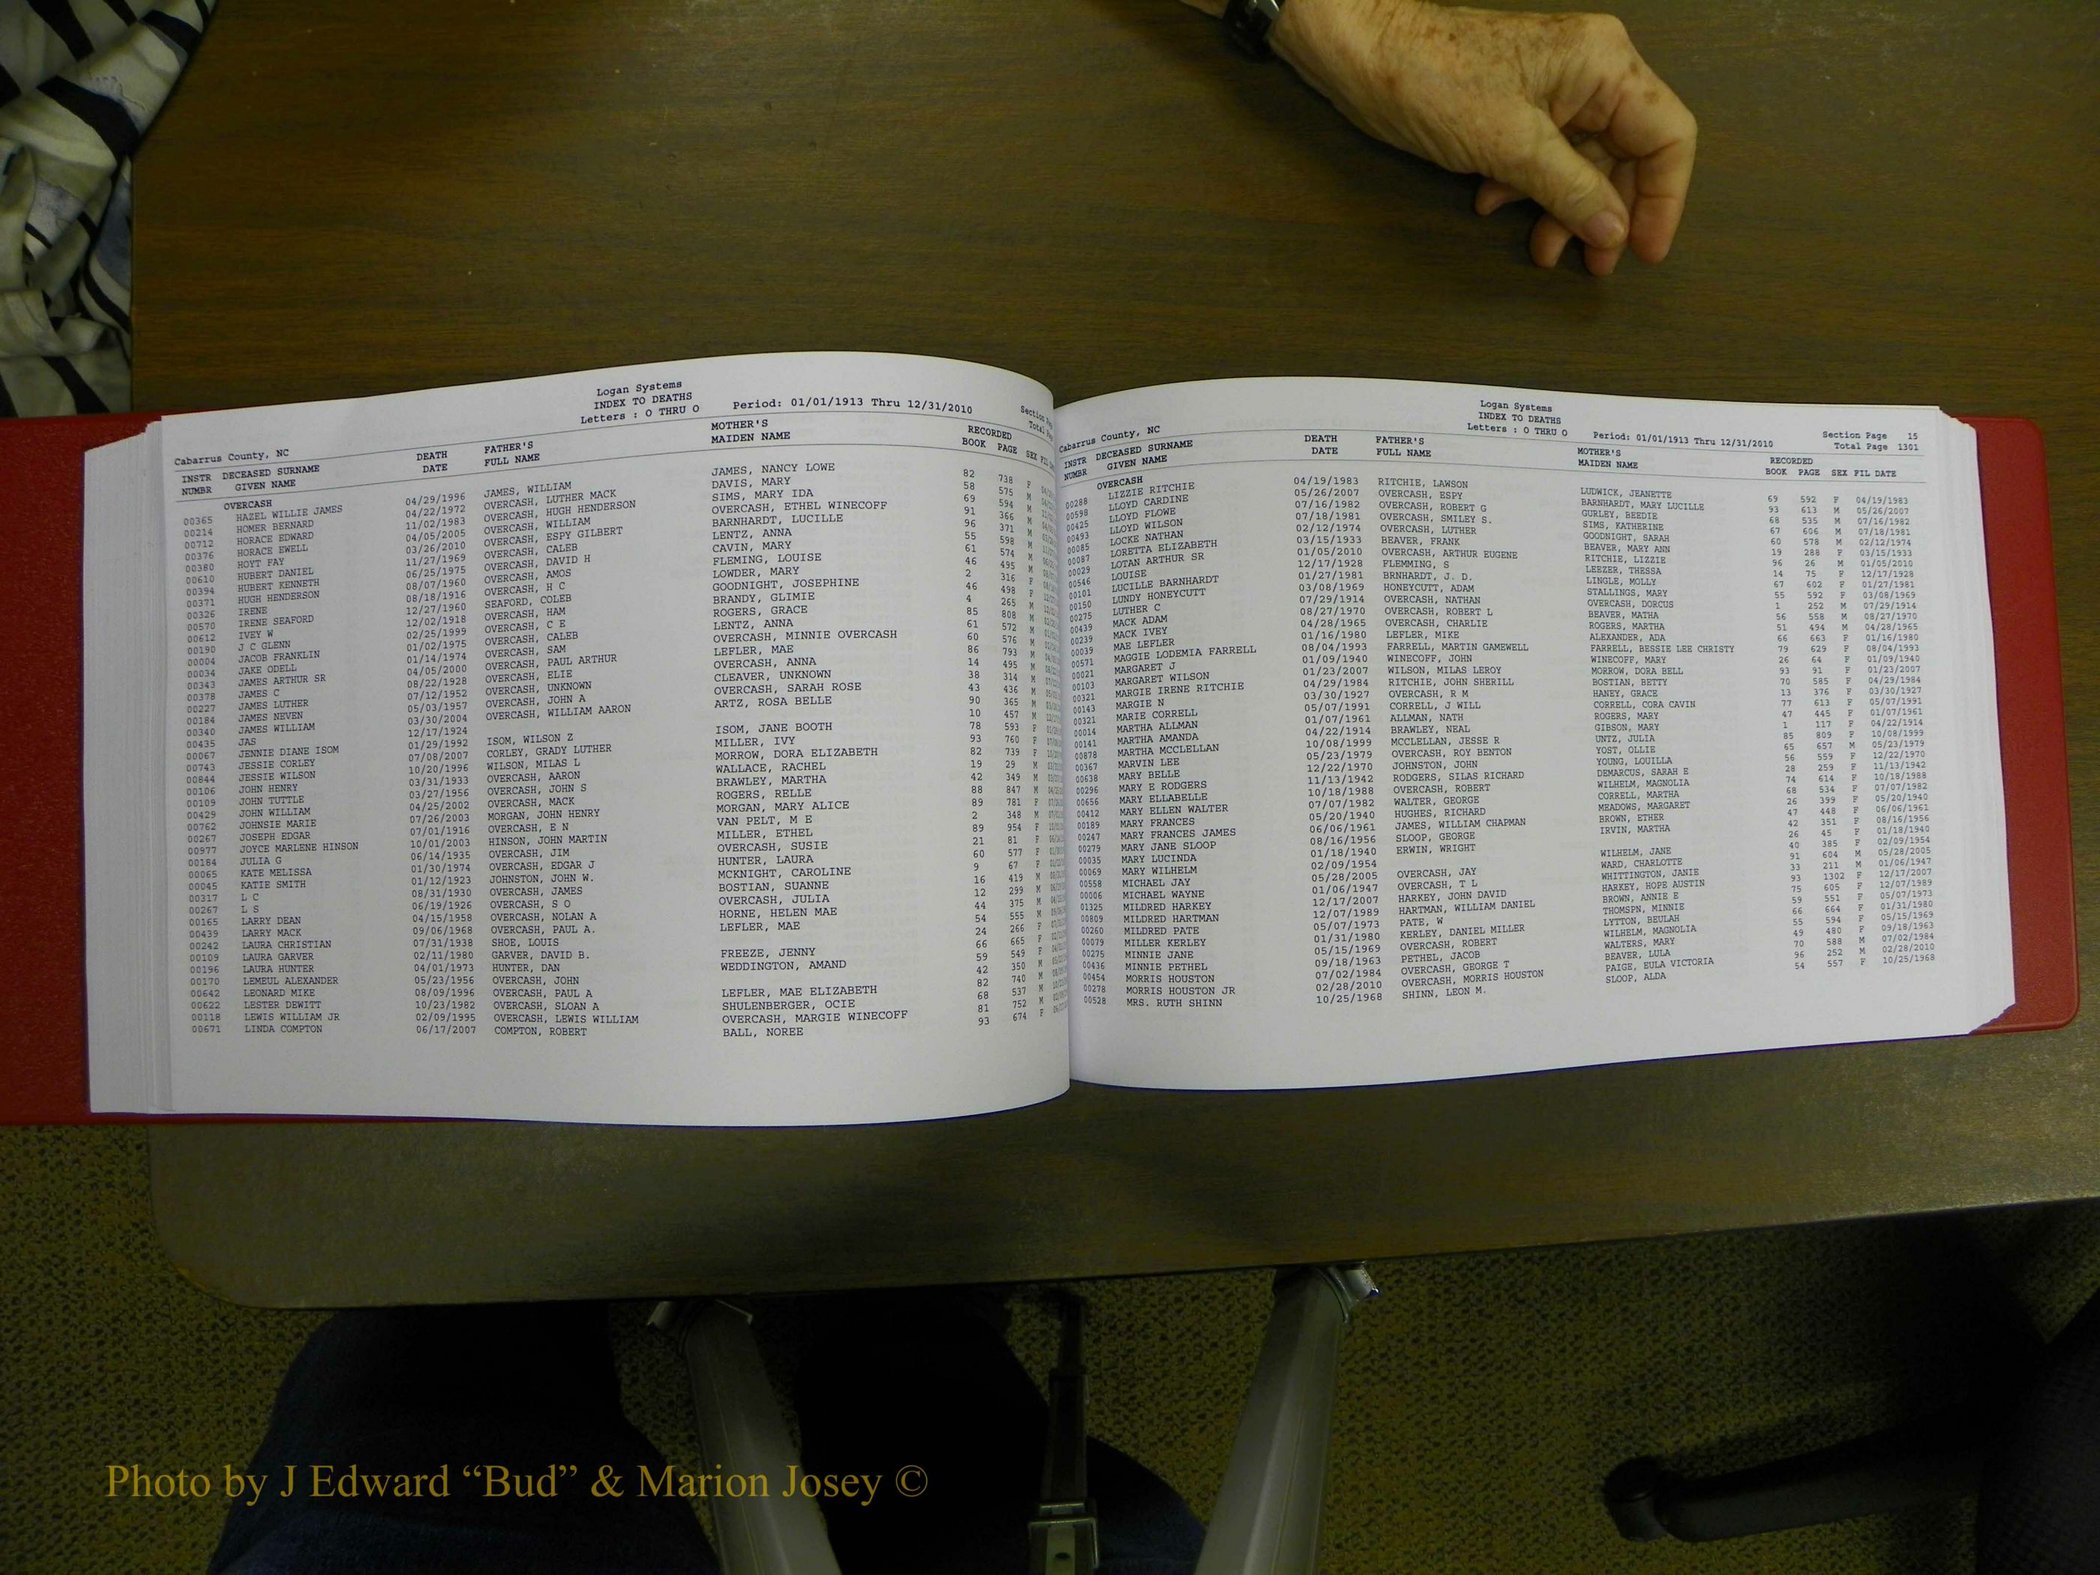 Logan Systems
INDEX TO DEATHS
Letters : O THRU O Period: 01/01/1913 Thru 12/31/2010
Section
Total
Cabarrus County, NC
INSTR DECEASED SURNAME DEATH FATHER'S MOTHER'S RECORDED
NUMBR GIVEN NAME DATE FULL NAME MAIDEN NAME BOOK PAGE SEX FIL
OVERCASH
00365 HAZEL WILLIE JAMES 04/29/1996 JAMES, WILLIAM JAMES, NANCY LOWE 82 738 F
00214 HOMER BERNARD 04/22/1972 OVERCASH, LUTHER MACK DAVIS, MARY 58 575 M
00712 HORACE EDWARD 11/02/1983 OVERCASH, HUGH HENDERSON SIMS, MARY IDA 69 594 M
00376 HORACE EWELL 04/05/2005 OVERCASH, WILLIAM OVERCASH, ETHEL WINECOFF 91 366 M
00380 HOYT FAY 03/26/2010 OVERCASH, ESPY GILBERT BARNHARDT, LUCILLE 96 371 M
00610 HUBERT DANIEL 11/27/1969 OVERCASH, CALEB LENTZ, ANNA 55 598 M
00394 HUBERT KENNETH 06/25/1975 OVERCASH, DAVID H CAVIN, MARY 61 574 M
00371 HUGH HENDERSON 08/07/1960 OVERCASH, AMOS FLEMING, LOUISE 46 495 M
00326 IRENE 08/18/1916 OVERCASH, H C LOWDER, MARY 2 316 F
00570 IRENE SEAFORD 12/27/1960 SEAFORD, COLEB GOODNIGHT, JOSEPHINE 46 498 F
00612 IVEY W 12/02/1918 OVERCASH, HAM BRANDY, GLIMIE 4 265 M
00190 J C GLENN 02/25/1999 OVERCASH, C E ROGERS, GRACE 85 808 M
00004 JACOB FRANKLIN 01/02/1975 OVERCASH, CALEB LENTZ, ANNA 61 572 M
00034 JAKE ODELL 01/14/1974 OVERCASH, SAM OVERCASH, MINNIE OVERCASH 60 576 M
00343 JAMES ARTHUR SR 04/05/2000 OVERCASH, PAUL ARTHUR LEFLER, MAE 86 793 M
00378 JAMES C 08/22/1928 OVERCASH, ELIE OVERCASH, ANNA 14 495 M
00227 JAMES LUTHER 07/12/1952 OVERCASH, UNKNOWN CLEAVER, UNKNOWN 38 314 M
00184 JAMES NEVEN 05/03/1957 OVERCASH, JOHN A OVERCASH, SARAH ROSE 43 436 M
00340 JAMES WILLIAM 03/30/2004 OVERCASH, WILLIAM AARON ARTZ, ROSA BELLE 90 365 M
00435 JAS 12/17/1924 10 457 M
00067 JENNIE DIANE ISOM 01/29/1992 ISOM, WILSON Z ISOM, JANE BOOTH 78 593 F
00743 JESSIE CORLEY 07/08/2007 CORLEY, GRADY LUTHER MILLER, IVY 93 760 F
00844 JESSIE WILSON 10/20/1996 WILSON, MILAS L MORROW, DORA ELIZABETH 82 739 F
00106 JOHN HENRY 03/31/1933 OVERCASH, AARON WALLACE, RACHEL 19 29 M
00109 JOHN TUTTLE 03/27/1956 OVERCASH, JOHN S BRAWLEY, MARTHA 42 349 M
00429 JOHN WILLIAM 04/25/2002 OVERCASH, MACK ROGERS, RELLE 88 847 M
00762 JOHNSIE MARIE 07/26/2003 MORGAN, JOHN HENRY MORGAN, MARY ALICE 89 781 F
00267 JOSEPH EDGAR 07/01/1916 OVERCASH, E N VAN PELT, M E 2 348 M
00977 JOYCE MARLENE HINSON 10/01/2003 HINSON, JOHN MARTIN MILLER, ETHEL 89 954 F
00184 JULIA G 06/14/1935 OVERCASH, JIM OVERCASH, SUSIE 21 81 F
00065 KATE MELISSA 01/30/1974 OVERCASH, EDGAR J HUNTER, LAURA 60 577 F
00045 KATIE SMITH 01/12/1923 JOHNSTON, JOHN W. MCKNIGHT, CAROLINE 9 67 F
00317 L C 08/31/1930 OVERCASH, JAMES BOSTIAN, SUANNE 16 419 M
00267 L S 06/19/1926 OVERCASH, S O OVERCASH, JULIA 12 299 M
00165 LARRY DEAN 04/15/1958 OVERCASH, NOLAN A HORNE, HELEN MAE 44 375 M
00439 LARRY MACK 09/06/1968 OVERCASH, PAUL A. LEFLER, MAE 54 555 M
00242 LAURA CHRISTIAN 07/31/1938 SHOE, LOUIS 24 266 F
00109 LAURA GARVER 02/11/1980 GARVER, DAVID B. FREEZE, JENNY 66 665 F
00196 LAURA HUNTER 04/01/1973 HUNTER, DAN WEDDINGTON, AMAND 59 549 F
00170 LEMEUL ALEXANDER 05/23/1956 OVERCASH, JOHN 42 350 M
00642 LEONARD MIKE 08/09/1996 OVERCASH, PAUL A LEFLER, MAE ELIZABETH 82 740 M
00622 LESTER DEWITT 10/23/1982 OVERCASH, SLOAN A SHULENBERGER, OCIE 68 537 M
00118 LEWIS WILLIAM JR 02/09/1995 OVERCASH, LEWIS WILLIAM OVERCASH, MARGIE WINECOFF 81 752 M
00671 LINDA COMPTON 06/17/2007 COMPTON, ROBERT BALL, NOREE 93 674 F
Logan Systems
INDEX TO DEATHS
Letters : O THRU O Period: 01/01/1913 Thru 12/31/2010
Section Page 15
Total Page 1301
Cabarrus County, NC
INSTR DECEASED SURNAME DEATH FATHER'S MOTHER'S RECORDED
NUMBR GIVEN NAME DATE FULL NAME MAIDEN NAME BOOK PAGE SEX FIL DATE
OVERCASH
00288 LIZZIE RITCHIE 04/19/1983 RITCHIE, LAWSON LUDWICK, JEANETTE 69 592 F 04/19/1983
00598 LLOYD CARDINE 05/26/2007 OVERCASH, ESPY BARNHARDT, MARY LUCILLE 93 613 M 05/26/2007
00425 LLOYD FLOWE 07/16/1982 OVERCASH, ROBERT G GURLEY, BEEDIE 68 535 M 07/16/1982
00493 LLOYD WILSON 07/18/1981 OVERCASH, SMILEY S. SIMS, KATHERINE 67 606 M 07/18/1981
00085 LOCKE NATHAN 02/12/1974 OVERCASH, LUTHER GOODNIGHT, SARAH 60 578 M 02/12/1974
00087 LORETTA ELIZABETH 03/15/1933 BEAVER, FRANK BEAVER, MARY ANN 19 288 F 03/15/1933
00029 LOTAN ARTHUR SR 01/05/2010 OVERCASH, ARTHUR EUGENE RITCHIE, LIZZIE 96 26 M 01/05/2010
00546 LOUISE 12/17/1928 FLEMMING, S LEEZER, THESSA 14 75 F 12/17/1928
00101 LUCILLE BARNHARDT 01/27/1981 BRNHARDT, J. D. LINGLE, MOLLY 67 602 F 01/27/1981
00150 LUNDY HONEYCUTT 03/08/1969 HONEYCUTT, ADAM STALLINGS, MARY 55 592 F 03/08/1969
00275 LUTHER C 07/29/1914 OVERCASH, NATHAN OVERCASH, DORCUS 1 252 M 07/29/1914
00439 MACK ADAM 08/27/1970 OVERCASH, ROBERT L BEAVER, MATHA 56 558 M 08/27/1970
00239 MACK IVEY 04/28/1965 OVERCASH, CHARLIE ROGERS, MARTHA 51 494 M 04/28/1965
00039 MAE LEFLER 01/16/1980 LEFLER, MIKE ALEXANDER, ADA 66 663 F 01/16/1980
00571 MAGGIE LODEMIA FARRELL 08/04/1993 FARRELL, MARTIN GAMEWELL FARRELL, BESSIE LEE CHRISTY 79 629 F 08/04/1993
00021 MARGARET J 01/09/1940 WINECOFF, JOHN WINECOFF, MARY 26 64 F 01/09/1940
00103 MARGARET WILSON 01/23/2007 WILSON, MILAS LEROY MORROW, DORA BELL 93 91 F 01/23/2007
00321 MARGIE IRENE RITCHIE 04/29/1984 RITCHIE, JOHN SHERILL BOSTIAN, BETTY 70 585 F 04/29/1984
00143 MARGIE N 03/30/1927 OVERCASH, R M HANEY, GRACE 13 376 F 03/30/1927
00321 MARIE CORRELL 05/07/1991 CORRELL, J WILL CORRELL, CORA CAVIN 77 613 F 05/07/1991
00014 MARTHA ALLMAN 01/07/1961 ALLMAN, NATH ROGERS, MARY 47 445 F 01/07/1961
00141 MARTHA AMANDA 04/22/1914 BRAWLEY, NEAL GIBSON, MARY 1 117 F 04/22/1914
00878 MARTHA MCCLELLAN 10/08/1999 MCCLELLAN, JESSE R UNTZ, JULIA 85 809 F 10/08/1999
00367 MARVIN LEE 05/23/1979 OVERCASH, ROY BENTON YOST, OLLIE 65 657 M 05/23/1979
00638 MARY BELLE 12/22/1970 JOHNSTON, JOHN YOUNG, LOUILLA 56 559 F 12/22/1970
00296 MARY E RODGERS 11/13/1942 RODGERS, SILAS RICHARD DEMARCUS, SARAH E 28 259 F 11/13/1942
00656 MARY ELLABELLE 10/18/1988 OVERCASH, ROBERT WILHELM, MAGNOLIA 74 614 F 10/18/1988
00412 MARY ELLEN WALTER 07/07/1982 WALTER, GEORGE CORRELL, MARTHA 68 534 F 07/07/1982
00189 MARY FRANCES 05/20/1940 HUGHES, RICHARD MEADOWS, MARGARET 26 399 F 05/20/1940
00247 MARY FRANCES JAMES 06/06/1961 JAMES, WILLIAM CHAPMAN BROWN, ETHER 47 448 F 06/06/1961
00279 MARY JANE SLOOP 08/16/1956 SLOOP, GEORGE IRVIN, MARTHA 42 351 F 08/16/1956
00035 MARY LUCINDA 01/18/1940 ERWIN, WRIGHT 26 45 F 01/18/1940
00069 MARY WILHELM 02/09/1954 WILHELM, JANE 40 385 F 02/09/1954
00558 MICHAEL JAY 05/28/2005 OVERCASH, JAY WARD, CHARLOTTE 91 604 M 05/28/2005
00006 MICHAEL WAYNE 01/06/1947 OVERCASH, T L WHITTINGTON, JANIE 33 211 M 01/06/1947
01325 MILDRED HARKEY 12/17/2007 HARKEY, JOHN DAVID HARKEY, HOPE AUSTIN 93 1302 F 12/17/2007
00809 MILDRED HARTMAN 12/07/1989 HARTMAN, WILLIAM DANIEL BROWN, ANNIE E 75 605 F 12/07/1989
00260 MILDRED PATE 05/07/1973 PATE, W THOMSPN, MINNIE 59 551 F 05/07/1973
00079 MILLER KERLEY 01/31/1980 KERLEY, DANIEL MILLER LYTTON, BEULAH 66 664 F 01/31/1980
00275 MINNIE JANE 05/15/1969 OVERCASH, ROBERT WILHELM, MAGNOLIA 55 594 F 05/15/1969
00436 MINNIE PETHEL 09/18/1963 PETHEL, JACOB WALTERS, MARY 49 480 F 09/18/1963
00454 MORRIS HOUSTON 07/02/1984 OVERCASH, GEORGE T BEAVER, LULA 70 588 M 07/02/1984
00278 MORRIS HOUSTON JR 02/28/2010 OVERCASH, MORRIS HOUSTON PAIGE, EULA VICTORIA 96 252 M 02/28/2010
00528 MRS. RUTH SHINN 10/25/1968 SHINN, LEON M. SLOOP, ALDA 54 557 F 10/25/1968
Photo by J Edward “Bud” & Marion Josey ©